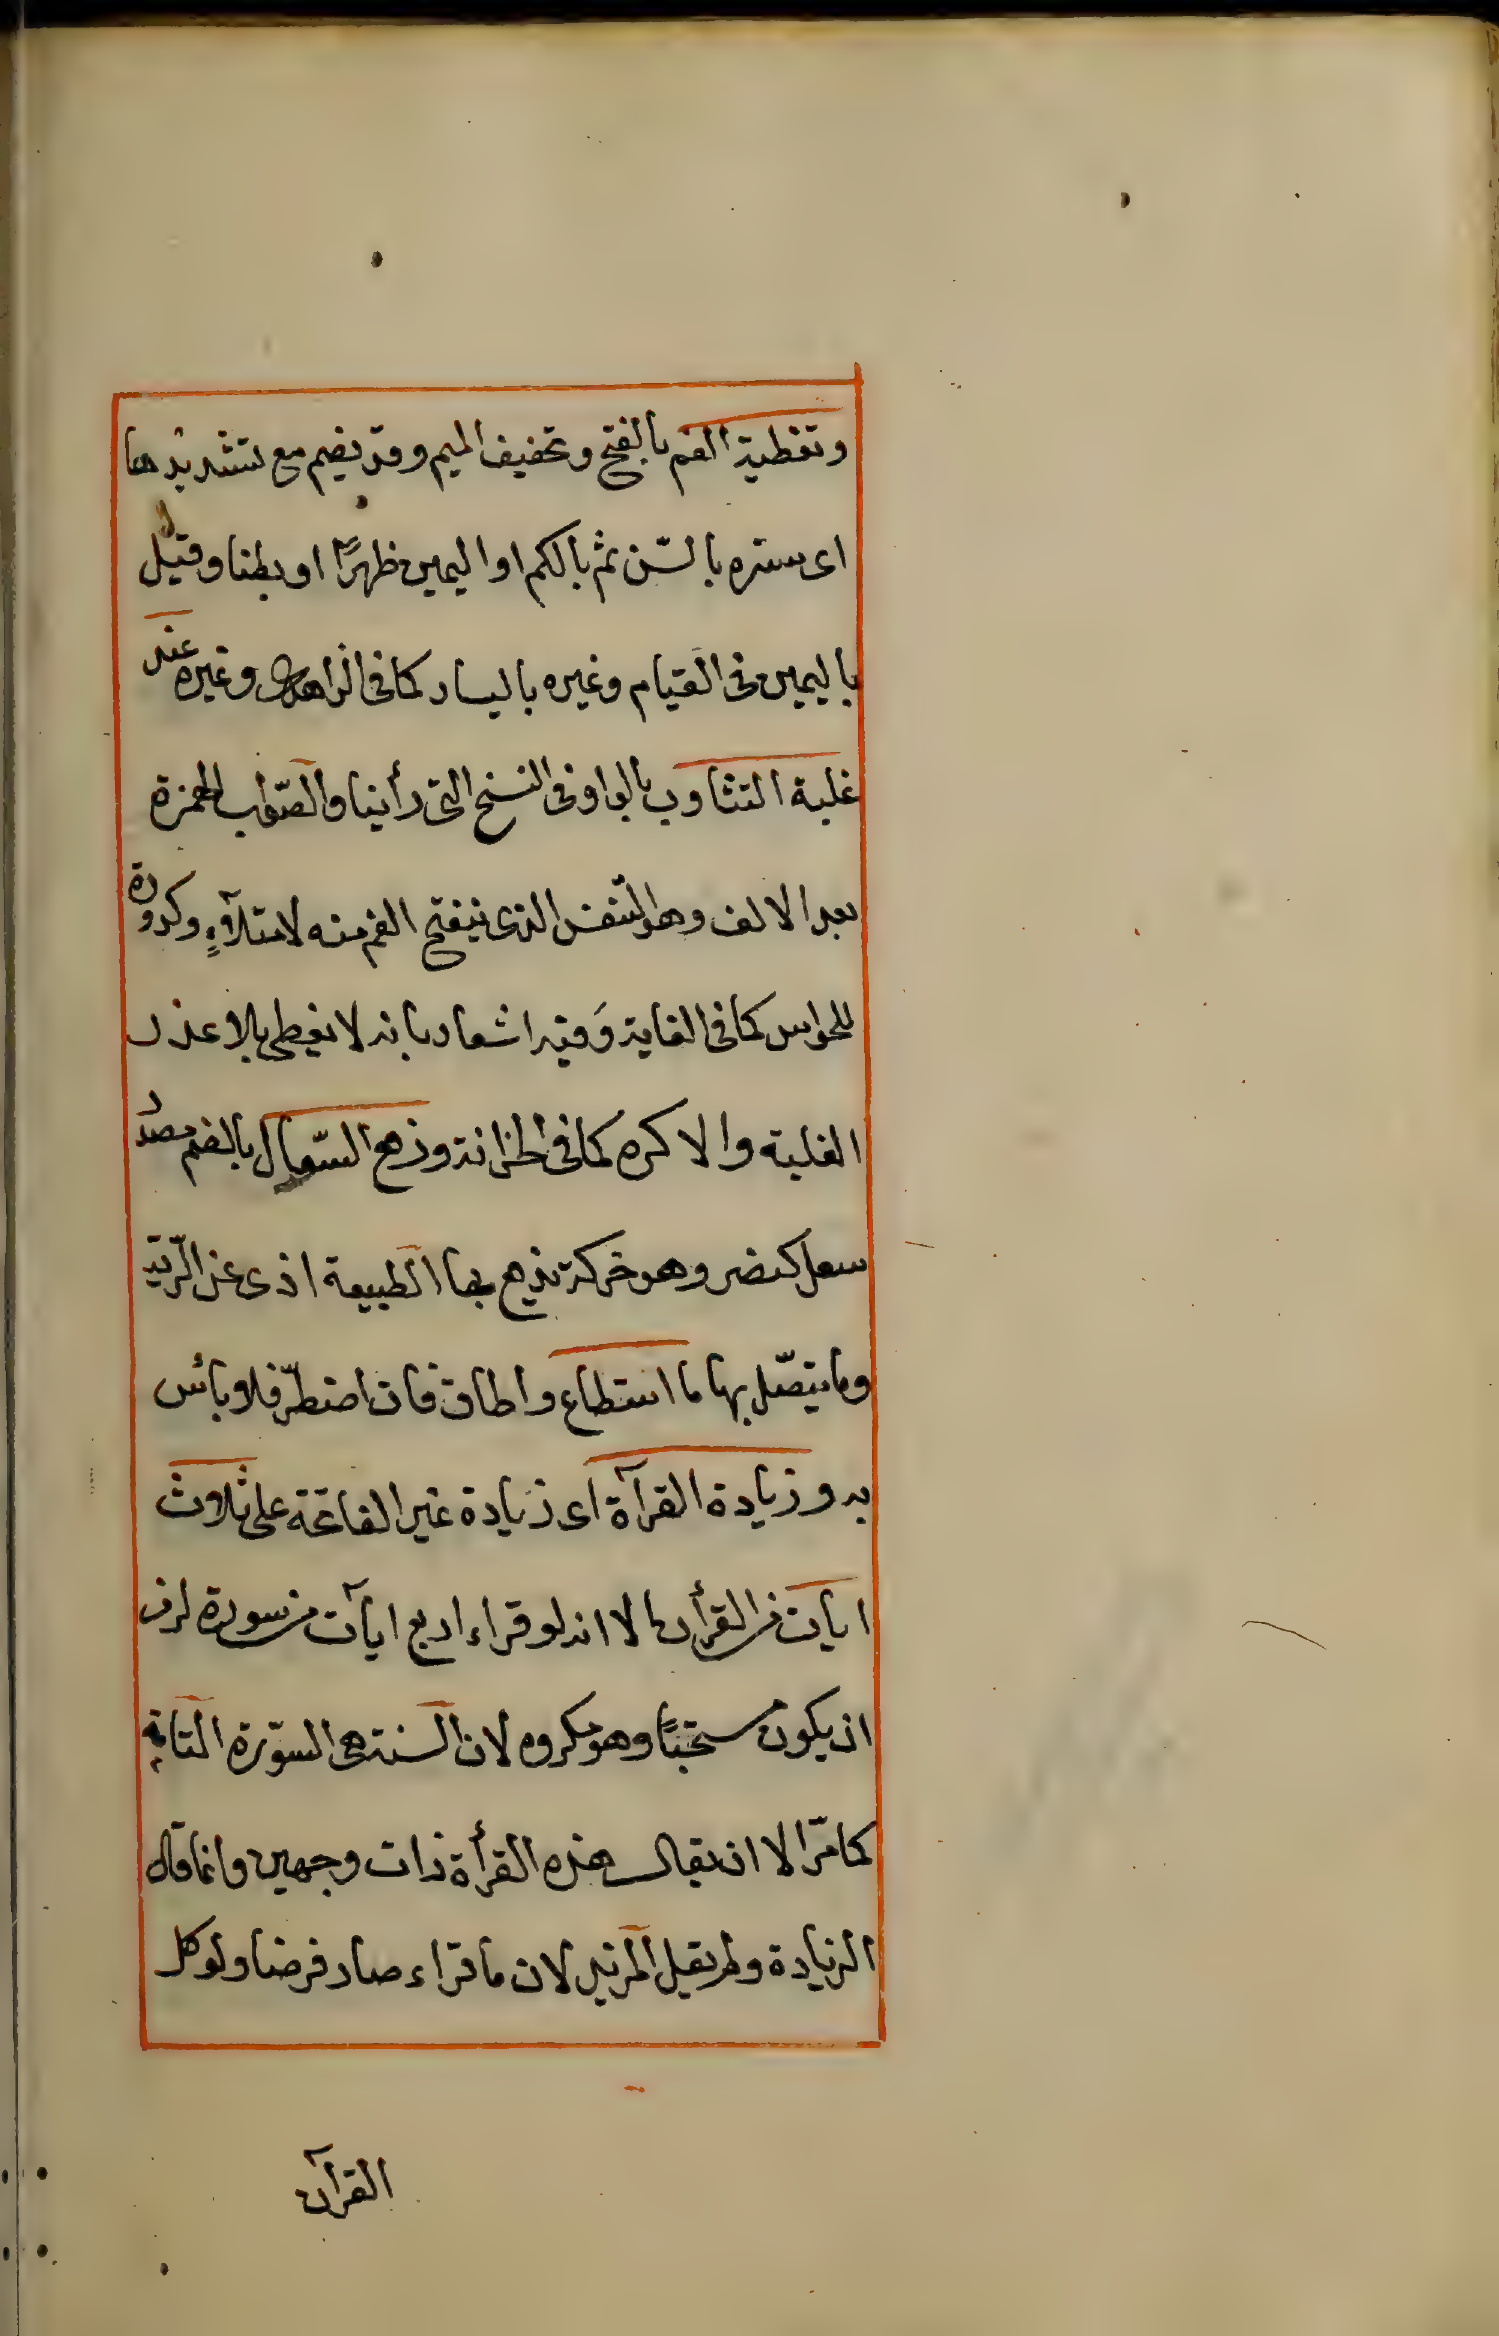 وتغطية الفم بالفتح وتخفيف الميم وقد يضم مع تشديدها
اى ستره بالسّن ثم بالكم او اليمين ظهرًا او بطنا وقيل
باليمين فى القيام وغيره باليسار كما فى الزاهدى وغيره عند
غلبة التثاوب بالواو فى النسخ التى رأينا والصّواب الهمزة
بعد الالف وهو التنفس الذى ينفتح الفم منه لامتلآءٍ وكدورة
للحواس كما فى الغاية وفيه اشعار بانه لا يغطى بلا عذر
الغلبة والا كره كما فى الخزانة ودفع السّعال بالضم مصدر
سعل كنصر وهو حركة تدفع بها الطبيعة اذى عن الرّية
وما يتصّل بها ما استطاع واطاق فان اضطرّ فلا بائس
به وزيادة القرآة اى زيادة غير الفاتحة على ثلاث
ايات من القرأن الا انه لو قراء اربع ايآت من سورة لزم
ان يكون مستحبًا وهو مكروه لان السنة هى السوّرة التامة
كما مرّ الا ان يقال هذه القرأة ذات وجهين وانما قال
الزيادة ولم يقل المزيد لان ما قراء صار فرضا ولو كل
القرآن